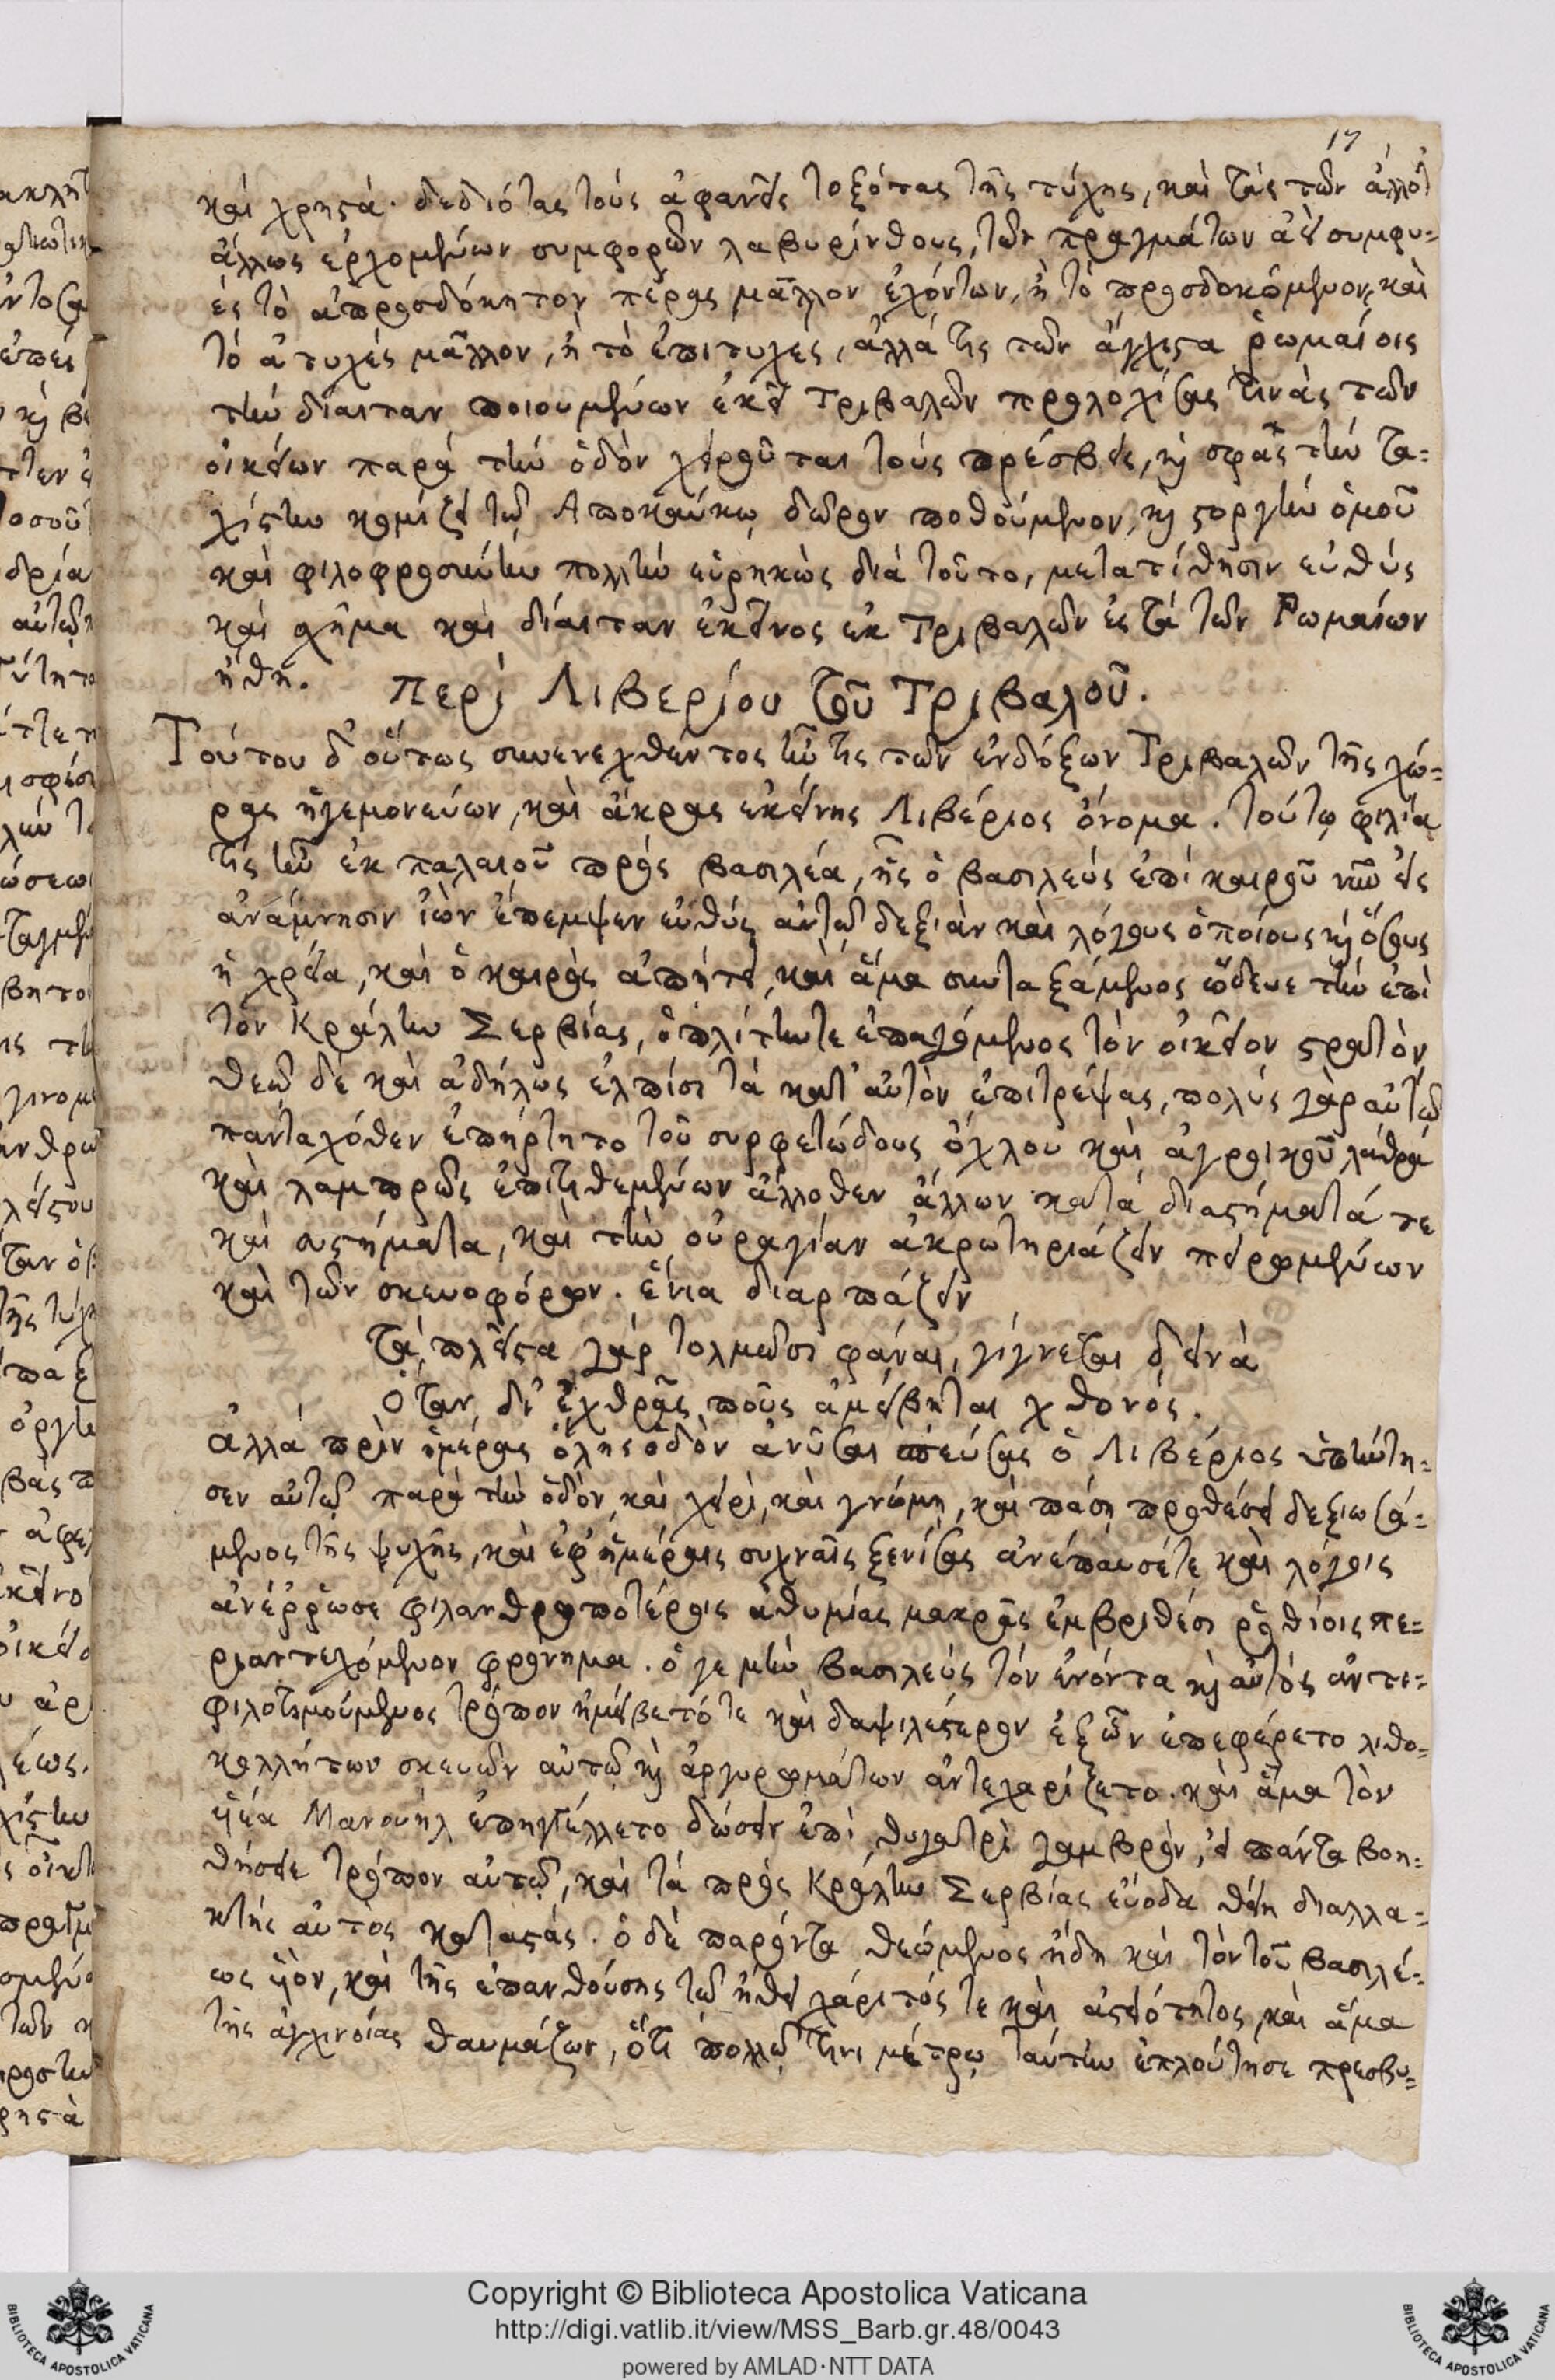 17
καὶ χρηστά. δεδιότας τοὺς ἀφανεῖς τοξότας τῆς τύχης, καὶ τὰς τῶν ἀλλοτ
ἄλλως ἐρχομένων συμφορῶν λαβυρίνθους, τῶν πραγμάτων ἀεὶ συμφυ=
ὲς τὸ ἀπροσδόκητον πέρας μᾶλλον ἐχόντων, ἢ τὸ προσδοκόμενον, καὶ
τὸ ἀτυχές μᾶλλον, ἢ τὸ ἐπιτυχές, ἀλλά τις τῶν ἄγχιστα ῥωμαίοις
τὴν δίαιταν ποιουμένων ἐκεῖ Τριβαλῶν προλοχίσας τινὰς τῶν
οἰκείων παρὰ τὴν ὁδὸν χειροῦται τοὺς πρέσβεις, καὶ σφᾶς τὴν τα=
χίστην κομίζει τῷ Ἀποκαύκῳ δῶρον ποθούμενον, καὶ στοργὴν ὁμοῦ
καὶ φιλοφροσύνην πολλὴν εὑρηκὼς διὰ τοῦτο, μετατίθησιν εὐθὺς
καὶ σχῆμα καὶ δίαιταν ἐκεῖνος ἐκ Τριβαλῶν ἐς τὰ τῶν Ῥωμαίων
ἤθη. Περὶ Λιβερίου τοῦ Τριβαλοῦ.
Τούτου δ' οὕτως συνενεχθέντος ἦν τις τῶν ἐνδόξων Τριβαλῶν τῆς χώ=
ρας ἡγεμονεύων, καὶ ἄκρας ἐκείνης Λιβέριος ὄνομα. τούτῳ φιλία
τίς ἦν ἐκ παλαιοῦ πρὸς βασιλέα, ἧς ὁ βασιλεὺς ἐπὶ καιροῦ νῦν εἰς
ἀνάμνησιν ἰὼν ἔπεμψεν εὐθὺς αὐτῷ δεξιὰν καὶ λόγους ὁποίους καὶ ὅσους
ἡ χρεία, καὶ ὁ καιρὸς ἀπῄτει, καὶ ἅμα συνταξάμενος ὥδευε τὴν ἐπὶ
τὸν Κράλην Σερβίας, ὁπλίτην τε ἐπαγόμενος τὸν οἰκεῖον στρατὸν,
θεῷ δὲ καὶ ἀδήλοις ἐλπίσι τὰ κατ' αὐτὸν ἐπιτρέψας, πολὺς γὰρ αὐτῷ
πανταχόθεν ἐπήρτητο τοῦ συρφετώδους ὄχλου καὶ ἀγροικοῦ λάθρᾳ
καὶ λαμπρῶς ἐπιτιθεμένων ἄλλοθεν ἄλλων κατὰ διαστήματά τε
καὶ συστήματα, καὶ τὴν οὐραγίαν ἀκρωτηριάζειν πειρωμένων
καὶ τῶν σκευοφόρων. ἔνια διαρπάζειν
Τὰ πλεῖστα γὰρ τολμῶσι φάναι, γίγνεται δεινὰ
Ὅταν δι' ἐχθρᾶς ποὺς ἀμείβηται χθονός.
ἀλλὰ πρὶν ἡμέρας ὅλης ὁδὸν ἀνῦσαι σπεύσας ὁ Λιβέριος ὑπήντη=
σεν αὐτῷ παρὰ τὴν ὁδὸν, καὶ χειρὶ, καὶ γνώμῃ, καὶ πάσῃ προθέσει δεξιωσά=
μενος τῆς ψυχῆς, καὶ ἐφ' ἡμέραις συχναῖς ξενίσας ἀνέπαυσέ τε καὶ λόγοις
ἀνέῤῥωσε φιλανθρωποτέροις ἀθυμίας μακρᾶς ἐμβριθέσι ῥοθίοις πε=
ριαντλούμενον φρόνημα. ὅ γε μὴν βασιλεὺς τὸν ἐνόντα καὶ αὐτὸς ἀντι=
φιλοτιμούμενος τρόπον ἠμείβετό τε καὶ δαψιλέστερον ἐξ ὧν ἐπεφέρετο λιθο=
κολλήτων σκευῶν αὐτῷ καὶ ἀργυρωμάτων ἀντεχαρίζετο. καὶ ἅμα τὸν
υἱέα Μανουὴλ ἐπηγγέλλετο δώσειν ἐπὶ θυγατρὶ γαμβρὸν, εἰ πάντα βοη=
θήσειε τρόπον αὐτῷ, καὶ τὰ πρὸς Κράλην Σερβίας εὔοδα θείη διαλλα=
κτὴς αὐτὸς καταστάς. ὁ δὲ παρόντα θεώμενος ἤδη καὶ τὸν τοῦ βασιλέ=
ως υἱὸν, καὶ τῆς ἐπανθούσης τῷ ἤθει χάριτός τε καὶ ἀστειότητος, καὶ ἅμα
τῆς ἀγχινοίας θαυμάζων, ὅτι πολλῷ τινι μέτρῳ ταύτην ἐπλούτησε πρεσβυ=
Copyright © Biblioteca Apostolica Vaticana
http://digi.vatlib.it/view/MSS_Barb.gr.48/0043
powered by AMLAD·NTT DATA